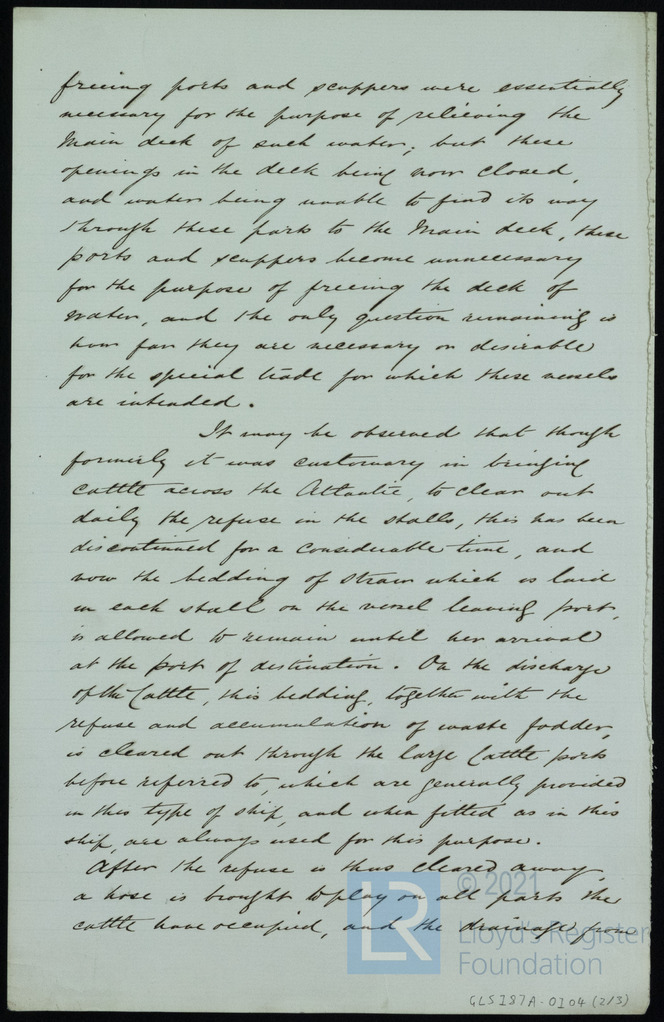 freeing ports and scuppers were essentially
necessary for the purpose of relieving the
Main deck of such water; but these
openings in the deck being now closed,
and water being unable to find its way
through these parts to the Main deck, these
ports and scuppers become unnecessary
for the purpose of freeing the deck of
water, and the only question remaining is
how far they are necessary or desirable
for the special trade for which these vessels
are intended.
It may be observed that though
formerly it was customary in bringing
cattle across the Atlantic, to clear out
daily the refuse in the stalls, this has been
discontinued for a considerable time, and
now the bedding of straw which is laid
in each stall on the vessel leaving port,
is allowed to remain until her arrival
at the port of destination. On the discharge
of the Cattle, this bedding, together with the
refuse and accumulation of waste fodder,
is cleared out through the large Cattle ports
before referred to, which are generally provided
in this type of ship, and when fitted as in this
ship, are always used for this purpose.
After the refuse is thus cleared away,
a hose is brought to play on all parts the
cattle have occupied, and the drainage from
LR
© 2021
Lloyd's Register
Foundation
GLSI87A-0104 (2/3)